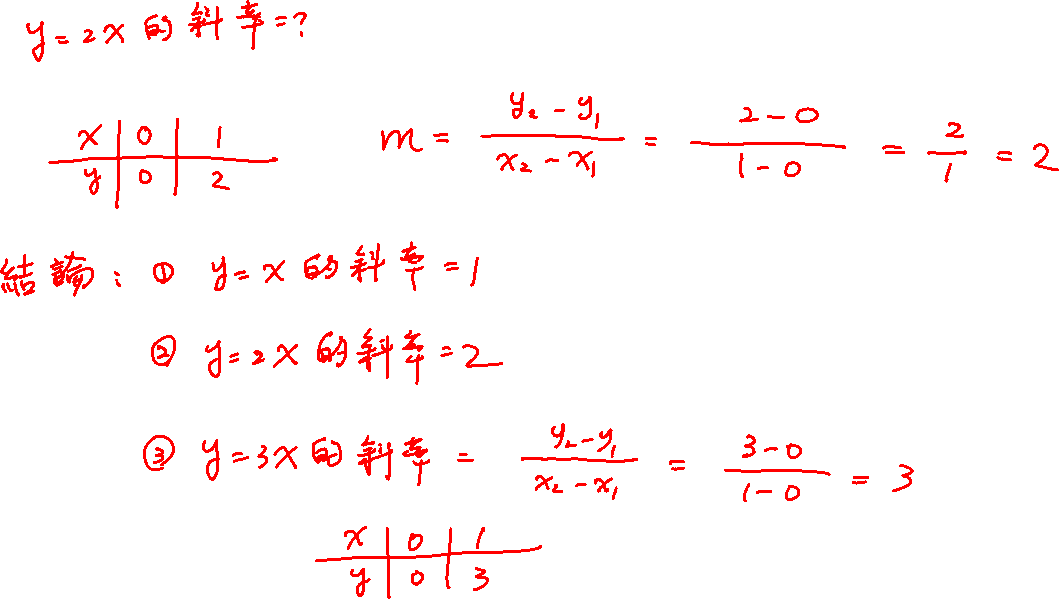 y=2x的斜率=?
x | 0 | 1
y | 0 | 2
m = (y₂-y₁)/(x₂-x₁) = (2-0)/(1-0) = 2/1 = 2
結論: ① y=x的斜率=1
② y=2x的斜率=2
③ y=3x的斜率 = (y₂-y₁)/(x₂-x₁) = (3-0)/(1-0) = 3
x | 0 | 1
y | 0 | 3